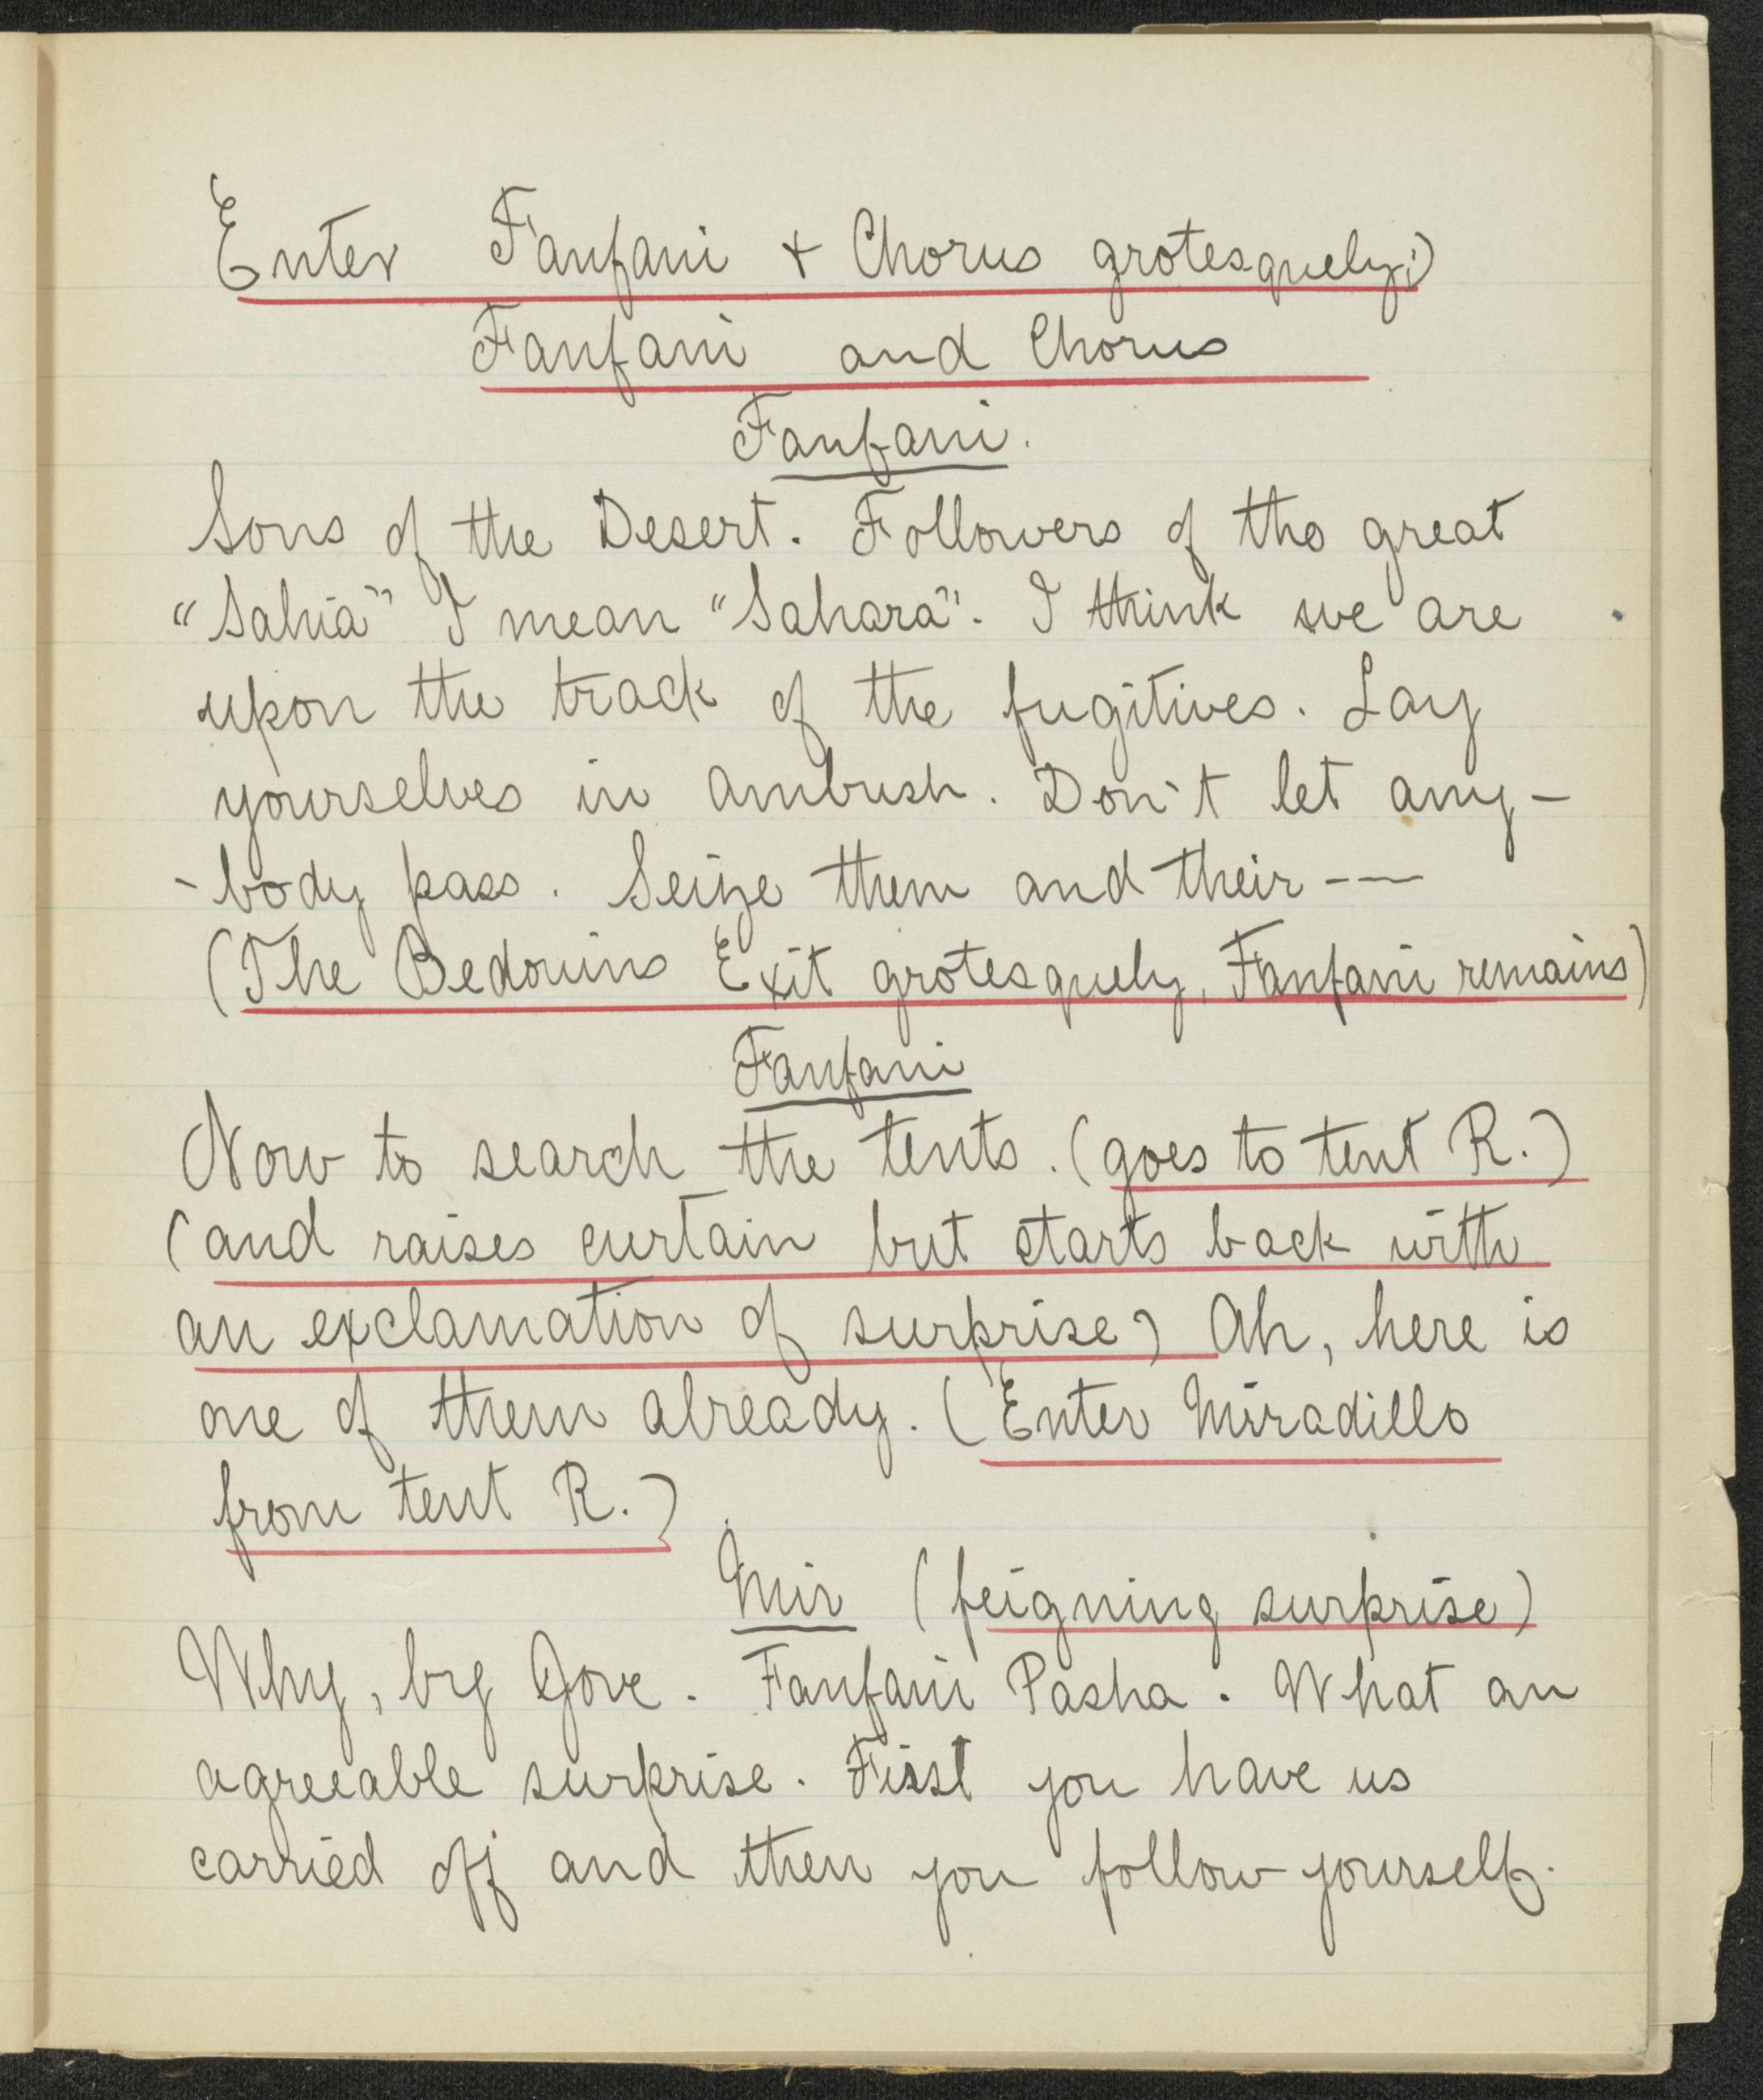 (Enter Fanfani + Chorus grotesquely:)
Fanfani and Chorus
Fanfani.
Sons of the Desert. Followers of the great
"Sahia" I mean "Sahara". I think we are
upon the track of the fugitives. Lay
yourselves in ambush. Don't let any-
-body pass. Seize them and their ---
(The Bedouins Exit grotesquely, Fanfani remains)
Fanfani
Now to search the tents. (goes to tent R.)
(and raises curtain but starts back with
an exclamation of surprise) Ah, here is
one of them already. (Enter Miradillo
from tent R.)
Mir (feigning surprise)
Why, by Jove. Fanfani Pasha. What an
agreeable surprise. First you have us
carried off and then you follow yourself.